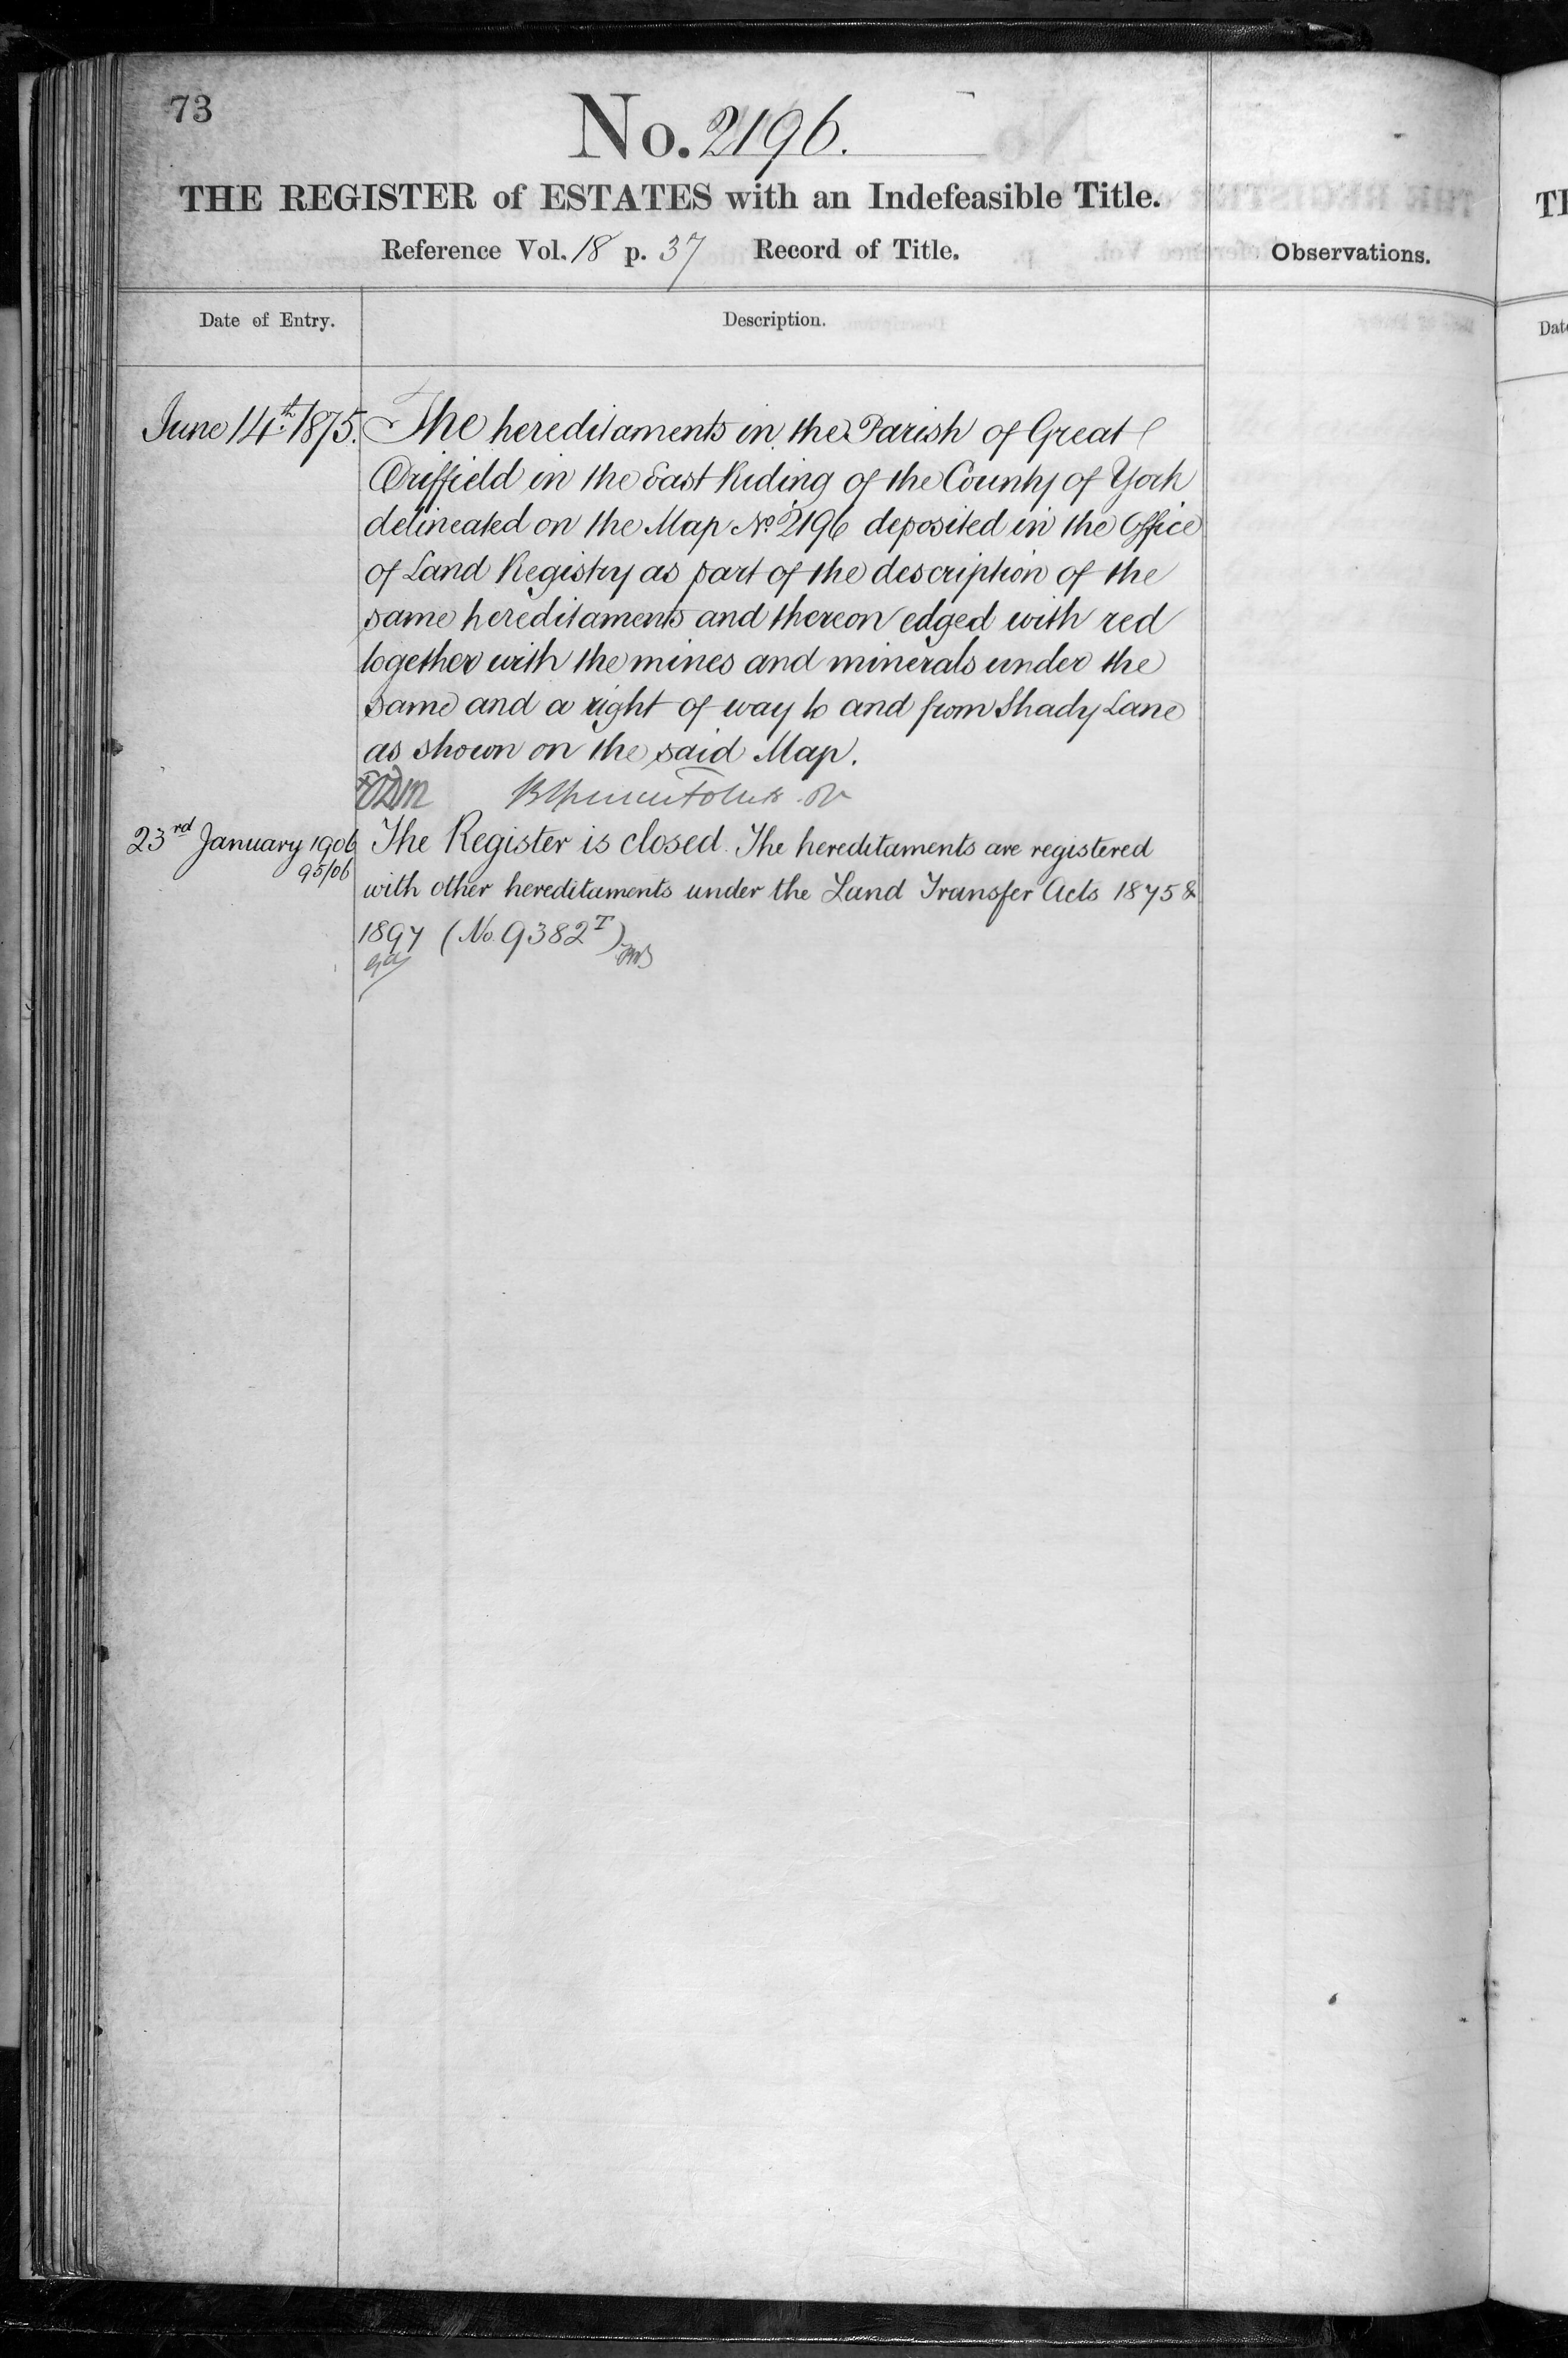 73
No. 2196.
THE REGISTER of ESTATES with an Indefeasible Title.
Reference Vol. 18 p. 37 Record of Title.
Observations.
Date of Entry.
Description.
June 14th 1875.
The hereditaments in the Parish of Great
Driffield in the East Riding of the County of York
delineated on the Map No 2196 deposited in the Office
of Land Registry as part of the description of the
same hereditaments and thereon edged with red
together with the mines and minerals under the
same and a right of way to and from Shady Lane
as shown on the said Map.
23rd January 1906
95/06
The Register is closed. The hereditaments are registered
with other hereditaments under the Land Transfer Acts 1875 &
1897 (No. 9382 I)